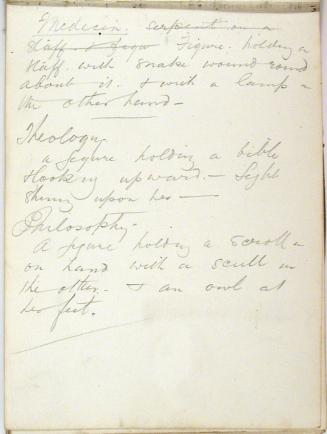 Medicin. serpent on a
staff & figur Figure. holding a
staff. with snake wound round
about it. & with a lamp in
the other hand—
Theology.
a figure holding a bible
& looking upward.— Light
shining upon her—
Philosophy.
A figure holding a scroll in
on hand with a scull in
the other.— & an owl at
her feet.